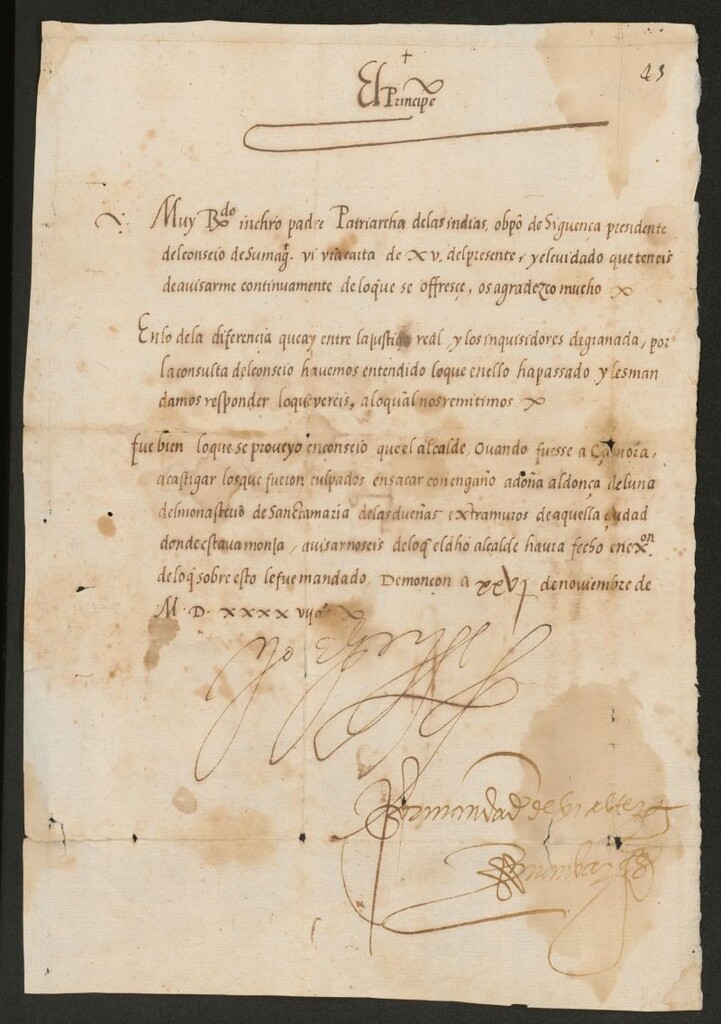 +
El Principe
43
Muy Rdo inchro padre Patriarcha delas indias, obpõ de Siguença presidente
del conseio de su mag. vi vra carta de xv. del presente, y el cuidado que teneis
de avisarme continuamente de lo que se offresce, os agradezco mucho
En lo de la diferencia que ay entre la justicia real y los inquisidores de granada, por
la consulta del conseio havemos entendido lo que en ello ha passado y les man
damos responder lo que vereis, a lo qual nos remitimos
fue bien lo que se proveyo en conseio que el alcalde Quando fuesse a Çamora,
a castigar los que fueron culpados en sacar con engaño a doña aldonça de luna
del monasterio de Sancta maria de las dueñas extramuros de aquella ciudad
donde estava monia, avisarnoseis de lo q̃ el dho alcalde havra fecho en exon
de lo q̃ sobre esto le fue mandado, De monçon a xxvj de noviembre de
M. D. xxxx vij
Yo el principe
Por mandado de su alteza